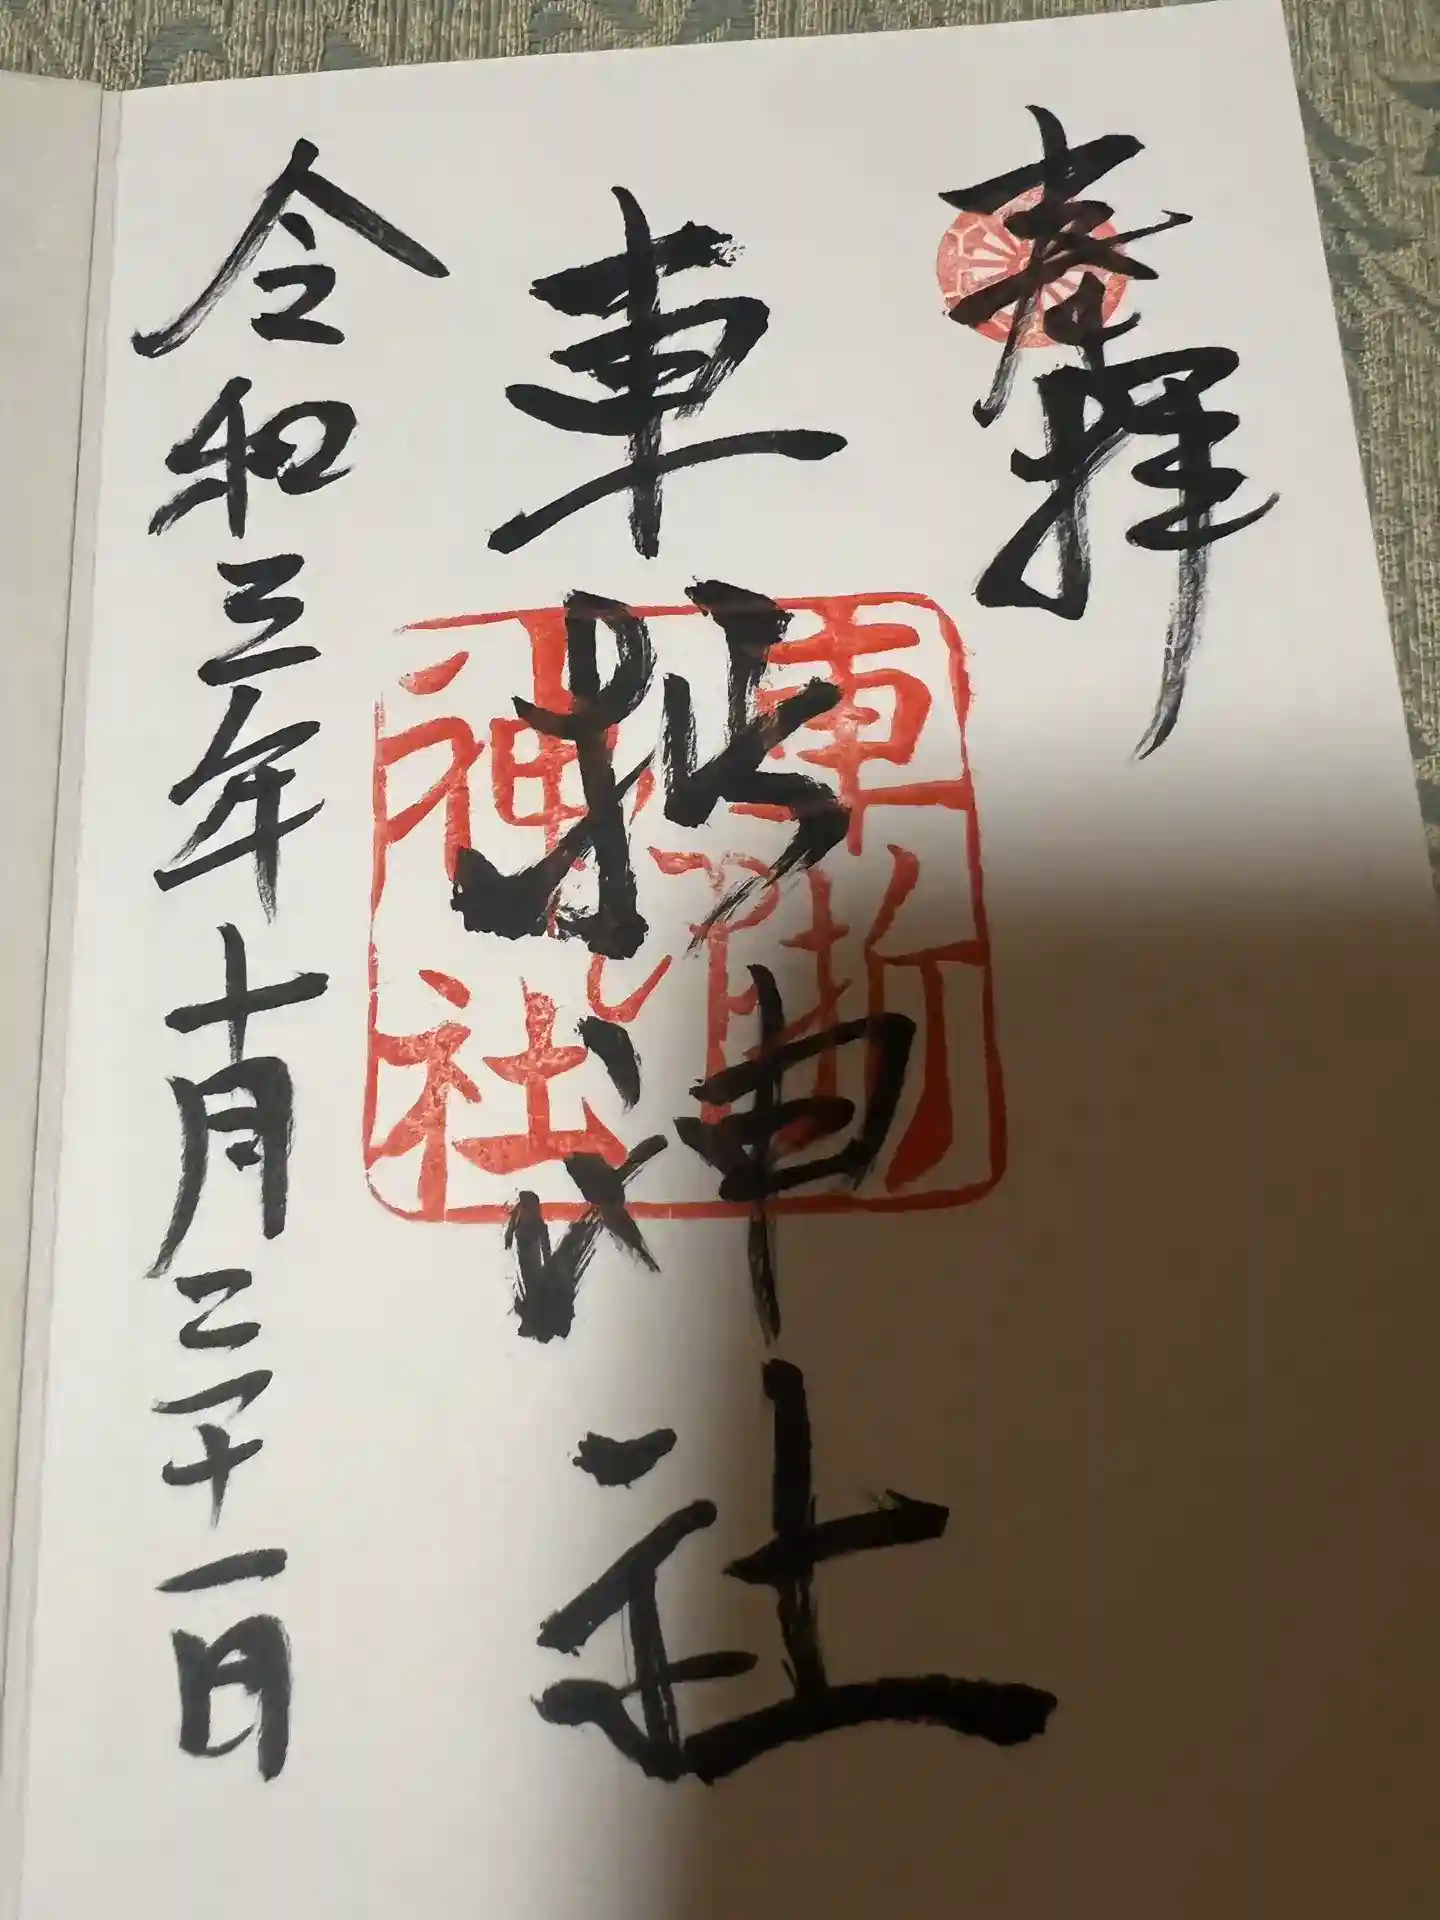 奉拝
車折神社
令和三年十月三十一日
車折
神社